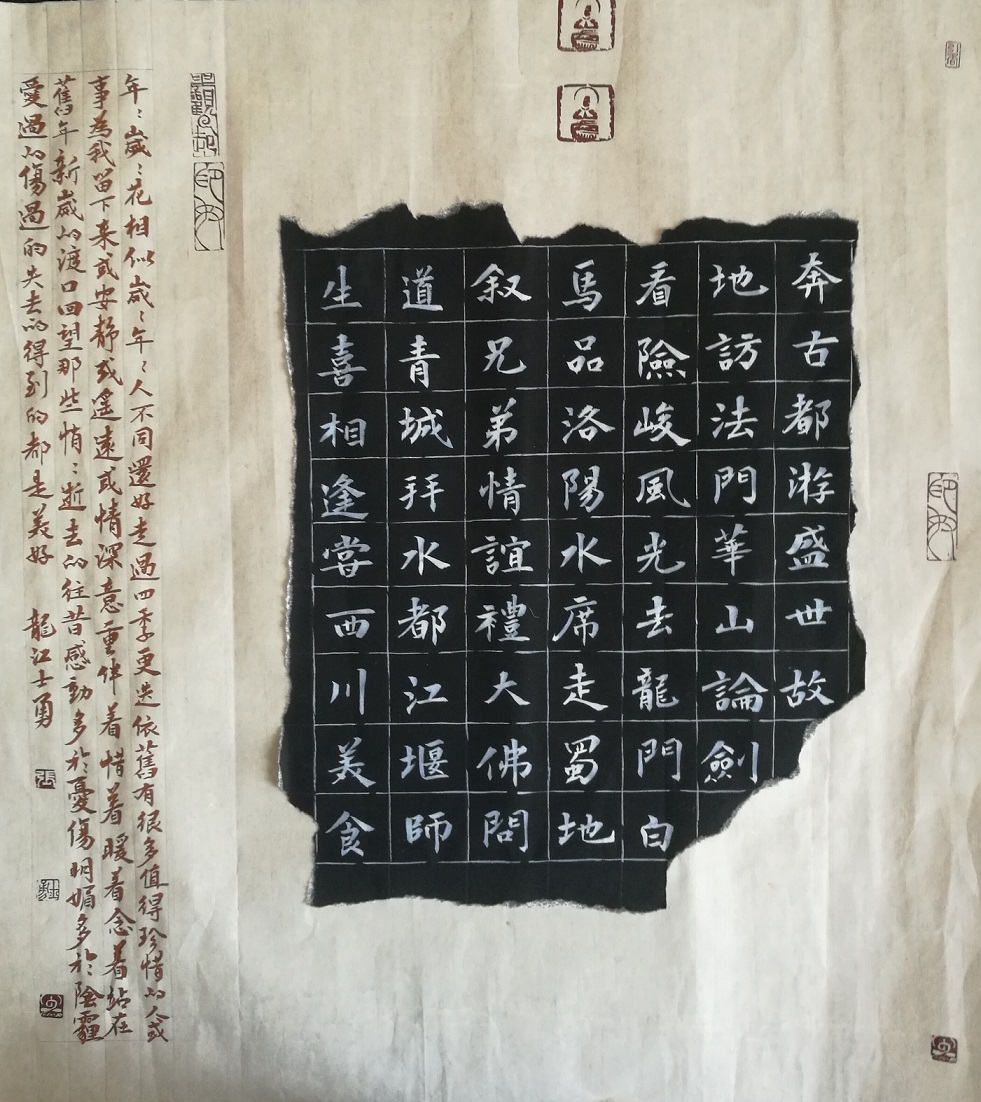 奔古都游盛世故
地訪法門華山論劍
看險峻風光去龍門白
馬品洛陽水席走蜀地
叙兄弟情誼禮大佛問
道青城拜水都江堰師
生喜相逢嘗西川美食
年〻歲〻花相似歲〻年〻人不同還好走過四季更迭依舊有很多值得珍惜的人或
事為我留下来或安靜或遥遠或情深意重伴着惜着暖着念着站在
舊年新歲的渡口回望那些悄〻逝去的往昔感動多於憂傷明媚多於陰霾
愛過的傷過的失去的得到的都是美好 龍江士勇